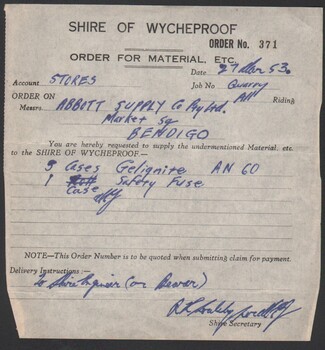 SHIRE OF WYCHEPROOF
ORDER No. 371
ORDER FOR MATERIAL, ETC.
Date 27 Mar 53.
Account STORES
Job No Quarry
ORDER ON
Riding
Messrs ABBOTT SUPPLY Co Pty Ltd.
Market Sq
BENDIGO
You are hereby requested to supply the undermentioned Material, etc.
to the SHIRE OF WYCHEPROOF:
5 Cases Gelignite AN 60
1 Safety Fuse
Case
NOTE—This Order Number is to be quoted when submitting claim for payment.
Delivery Instructions:—
to Shire Engineer (or Bearer)
Shire Secretary